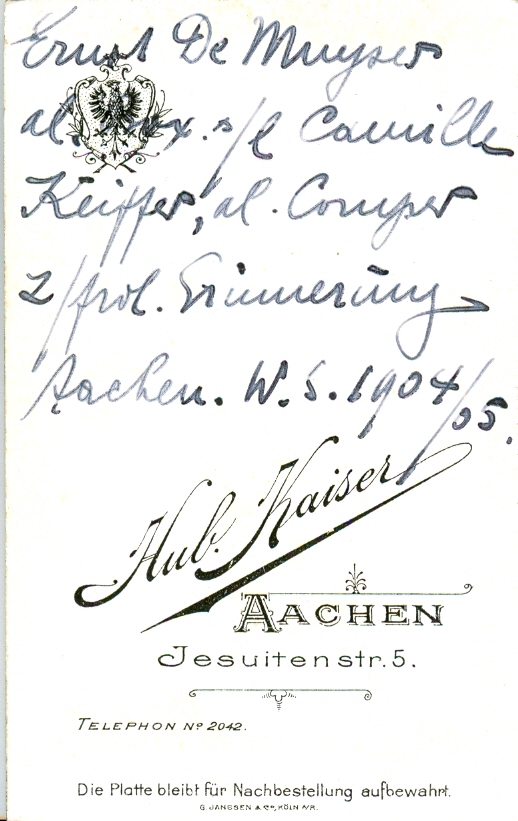 Ernst De Muyser
al. xxx. s/l Camille
Keiffer, al. Comper
z/frdl. Erinnerung
Aachen. W.S. 1904/05.
Hub. Kaiser
AACHEN
Jesuitenstr. 5.
TELEPHON No 2042.
Die Platte bleibt für Nachbestellung aufbewahrt.
G. JANSSEN & Co, KÖLN NR.